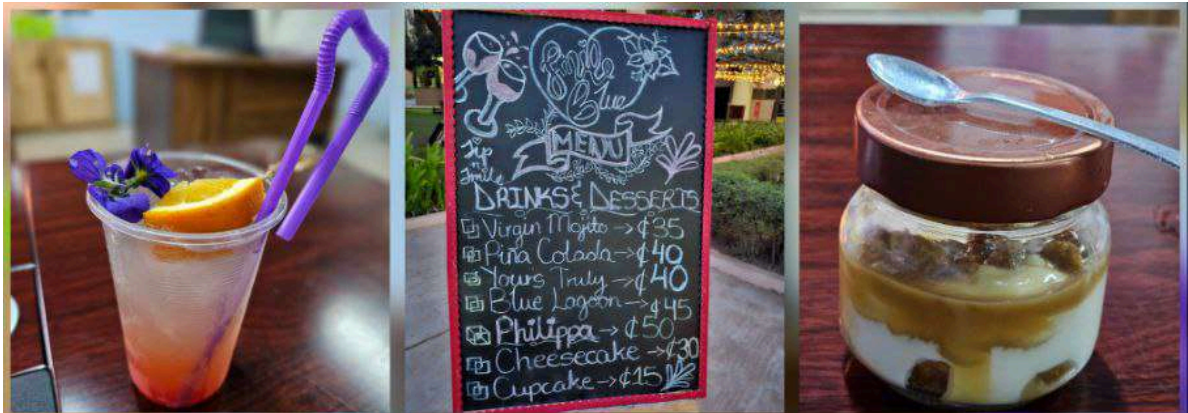 Smile
Blue
MENU
Sip
n
Smile
DRINKS & DESSERTS
Virgin Mojito → ₵35
Piña Colada → ₵40
Yours Truly → ₵40
Blue Lagoon → ₵45
Philippa → ₵50
Cheesecake → ₵30
Cupcake → ₵15